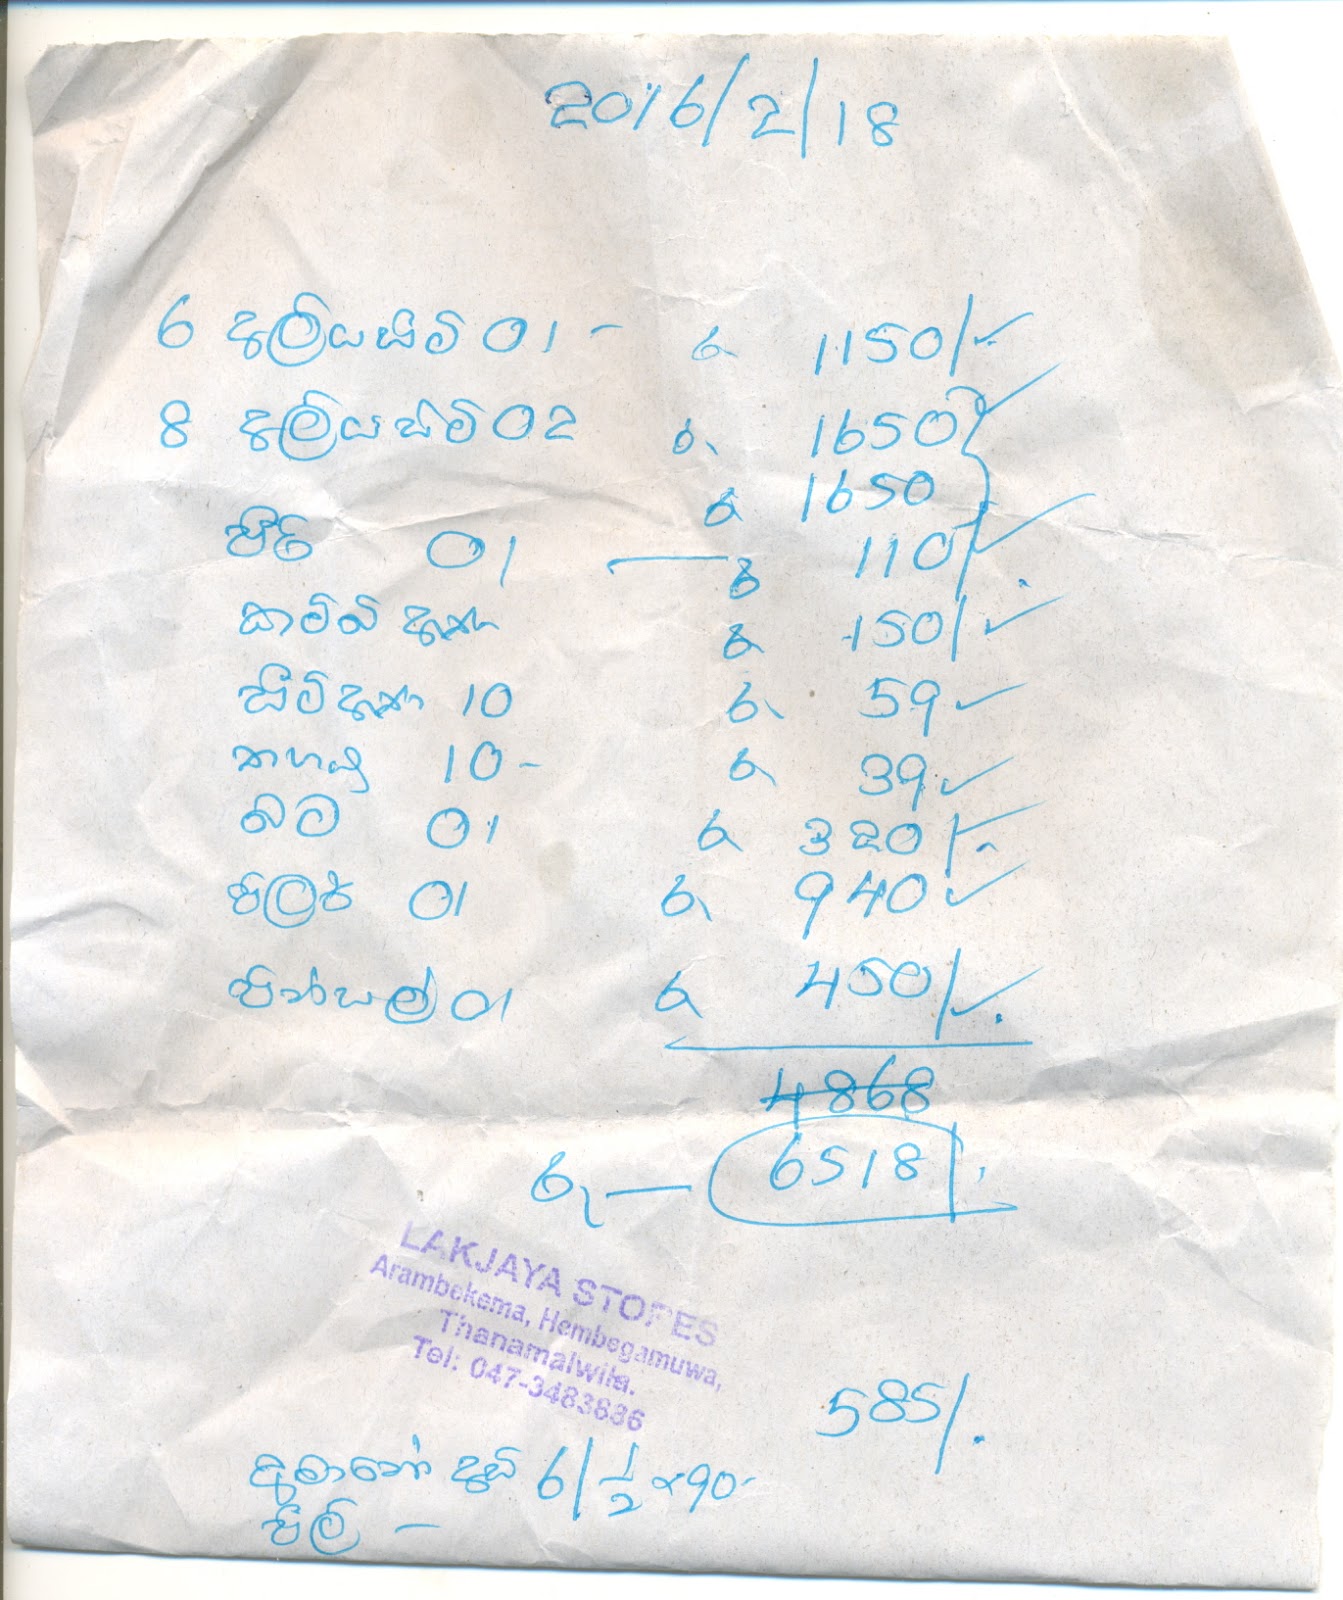 2016/2/18
6 අලියසීට් 01 - රු 1150/-
8 අලියසීට් 02 රු. 1650
රු 1650
01 — රු 110/-
කම්බි ඇණ රු 150/-
සීට් ඇණ 10 රු. 59
තහඩු 10 - රු 39
බට 01 රු 320/-
01 රු. 940
පින්සල් 01 රු 450/-
4868
රු — 6518/-
LAKJAYA STORES
Arambekema, Hembegamuwa,
Thanamalwila.
Tel: 047-3483836
585/-
6/ 1/2 x 90
පීල් -